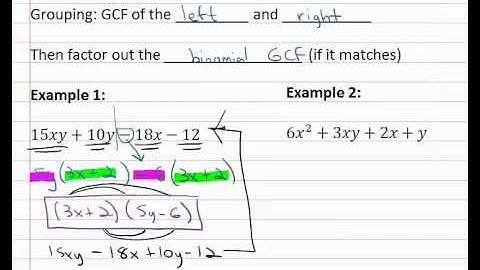 Grouping: GCF of the left and right
Then factor out the binomial GCF (if it matches)
Example 1:
Example 2:
15xy + 10y − 18x − 12
6x² + 3xy + 2x + y
5y(3x+2) −6(3x+2)
(3x+2)(5y−6)
15xy − 18x + 10y − 12